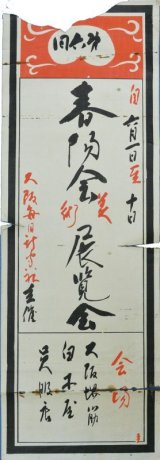 第六回
自 六月一日 至 十日
春陽会美術展覧会
大阪毎日新聞社 主催
会場
大阪堺筋
白木屋
呉服店